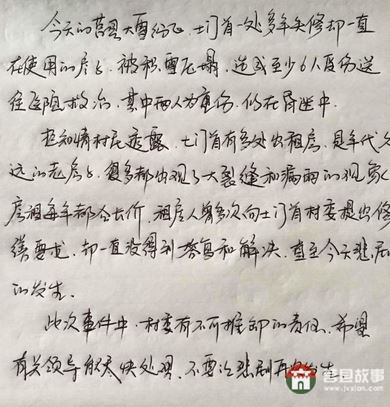 今天的莒县大雪纷飞，土门首一处多年失修却一直
在使用的房屋，被积雪压塌，造成至少6人受伤送
往医院救治，其中两人为重伤，仍在昏迷中．
据知情村民透露，土门首有多处出租房，是年代久
远的老房屋，多都出现了大裂缝和漏雨的现象，
房租每年都会长价，租房人曾多次向土门首村委提出修
缮要求，却一直没得到答复和解决，直至今天悲剧
的发生．
此次事件中，村委有不可推卸的责任，希望
有关领导能尽快处理，不要让悲剧再
莒县故事
www.jvxian.com